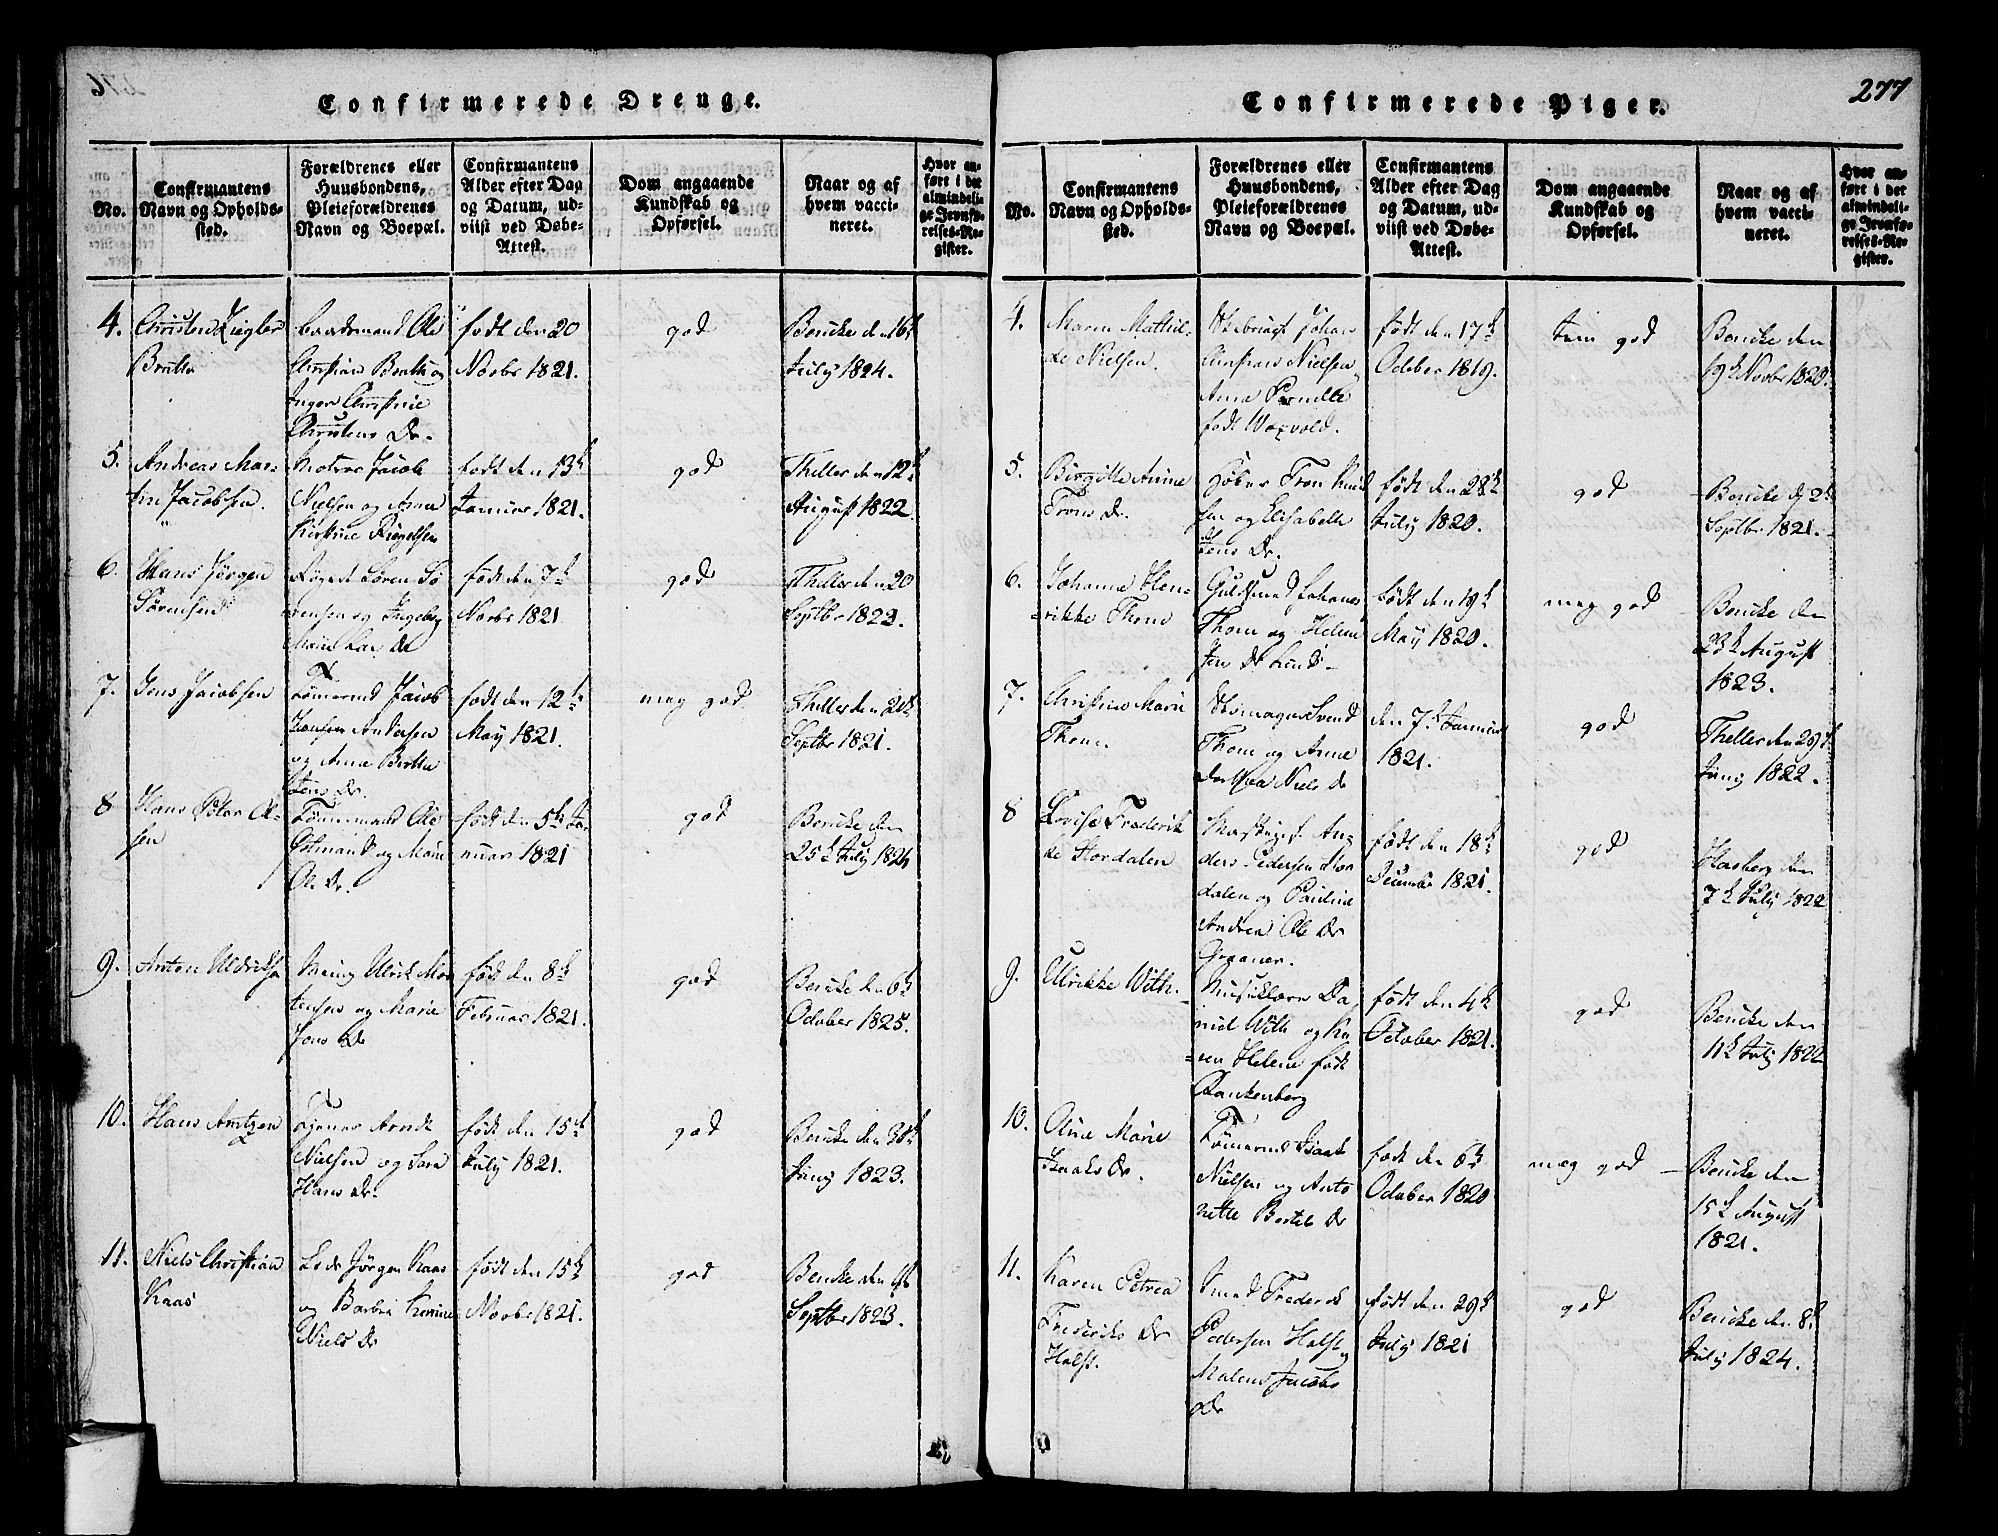 Confirmerede Drenge.
No.
Confirmantens
Navn og Opholds-
sted.
Forældrenes eller
Huusbondens,
Pleieforældrenes
Navn og Boepæl.
Confirmantens
Alder efter Dag
og Datum, ud-
viist ved Døbe-
Attest.
Dom angaaende
Kundskab og
Opførsel.
Naar og af
hvem vacci-
neret.
Hvor an-
ført i det
almindeli-
ge Jevnfø-
relses-Re-
gister.
4.
Christen Ziegler
Ole
Christian
Inger Christine
Christens Dr.
født den 20
Novbr 1821.
god
Bencke den 16
July 1824.
5.
Andreas Mar-
tin Jacobsen.
Matros Jacob
Nielsen og Anne
Kirstine
født den 13
Januar 1821.
god
Theller den 12
August 1822.
6.
Hans Jørgen
Sørensen
Søren Sø-
rensen og Ingeborg
født den 7
Novbr 1821
god
Theller den 20
Septbr 1822.
7.
Jens Jacobsen
Tømermd Jacob
Andersen
og Anne Birthe
Jens Dr.
født den 12
May 1821.
meg god
Theller den
Septbr 1821.
8
Hans Peter Ol-
sen
Tømmermand Ole
Østmand og Marie
Ole Dr.
født den 5 Ja-
nuar 1821
god
Bencke den
25 July 1824
9.
Anton Uldriksen
Ulrik Mor
tensen og Marie
Jens Dr
født den 8
Februar 1821.
god
Bencke den 6
October 1825.
10.
Hans Arntzen
Arndt
Nielsen og Sara
Hans Dr.
født den 15
July 1821.
god
Bencke den 30
Juny 1823.
11.
Niels Christian
Kaas
Jørgen Kaas
og Barbra
Niels Dr
født den 15
Novbr 1821.
god
Bencke den
Septbr 1823.
Confirmerede Piger.
277
No.
Confirmantens
Navn og Opholds-
sted.
Forældrenes eller
Huusbondens,
Pleieforældrenes
Navn og Boepæl.
Confirmantens
Alder efter Dag
og Datum, ud-
viist ved Døbe-
Attest.
Dom angaaende
Kundskab og
Opførsel.
Naar og af
hvem vacci-
neret.
Hvor an-
ført i det
almindeli-
ge Jevnfø-
relses-Re-
gister.
4.
Maren Mathil-
de Nielsen.
Johan
Christian Nielsen
Anne Pernille
født Woxvold.
født den 17
October 1819.
tem god
Bencke den
19 Novbr 1820.
5.
Birgitte Anine
Trons Dr.
Tron Knud
sen og Elisabeth
Jens Dr.
født den 28
July 1820.
god
Bencke d 2
Septbr 1821.
6.
Johanne Hen-
rikke Thom
Guldsmed Johannes
Thom og Helene
født den 19
May 1820.
meg god
Bencke den
23 August
1823.
7.
Christine Marie
Thom.
Svend
Thom og Anne
Dorthea Niels Dr
den 7 Januar
1821.
god
Theller den 29
Juny 1822.
8
Lovise Frederik
ke Stordalen
An-
ders Pedersen Stor
dalen og Pauline
Andrea Ole Dr
født den 18
December 1821.
god
Hasberg den
7 July 1822
9.
Ulrikke With.
Da-
niel With og Ka-
ren Helene født
Rankenberg
født den 4
October 1821.
god
Bencke den
11 July 1822
10.
Oline Marie
Isaks Dr.
Tømermd Isaak
Nielsen og Anto
nette Bertel Dr
født den 6
October 1820
meg god
Bencke den
15 August
1821.
11.
Karen Petrea
Frederiks Dr
Holst.
Smed Frederik
Pedersen Holst og
Malene Jacobs
Dr
født den 29
July 1821
god
Bencke den 8
July 1824.